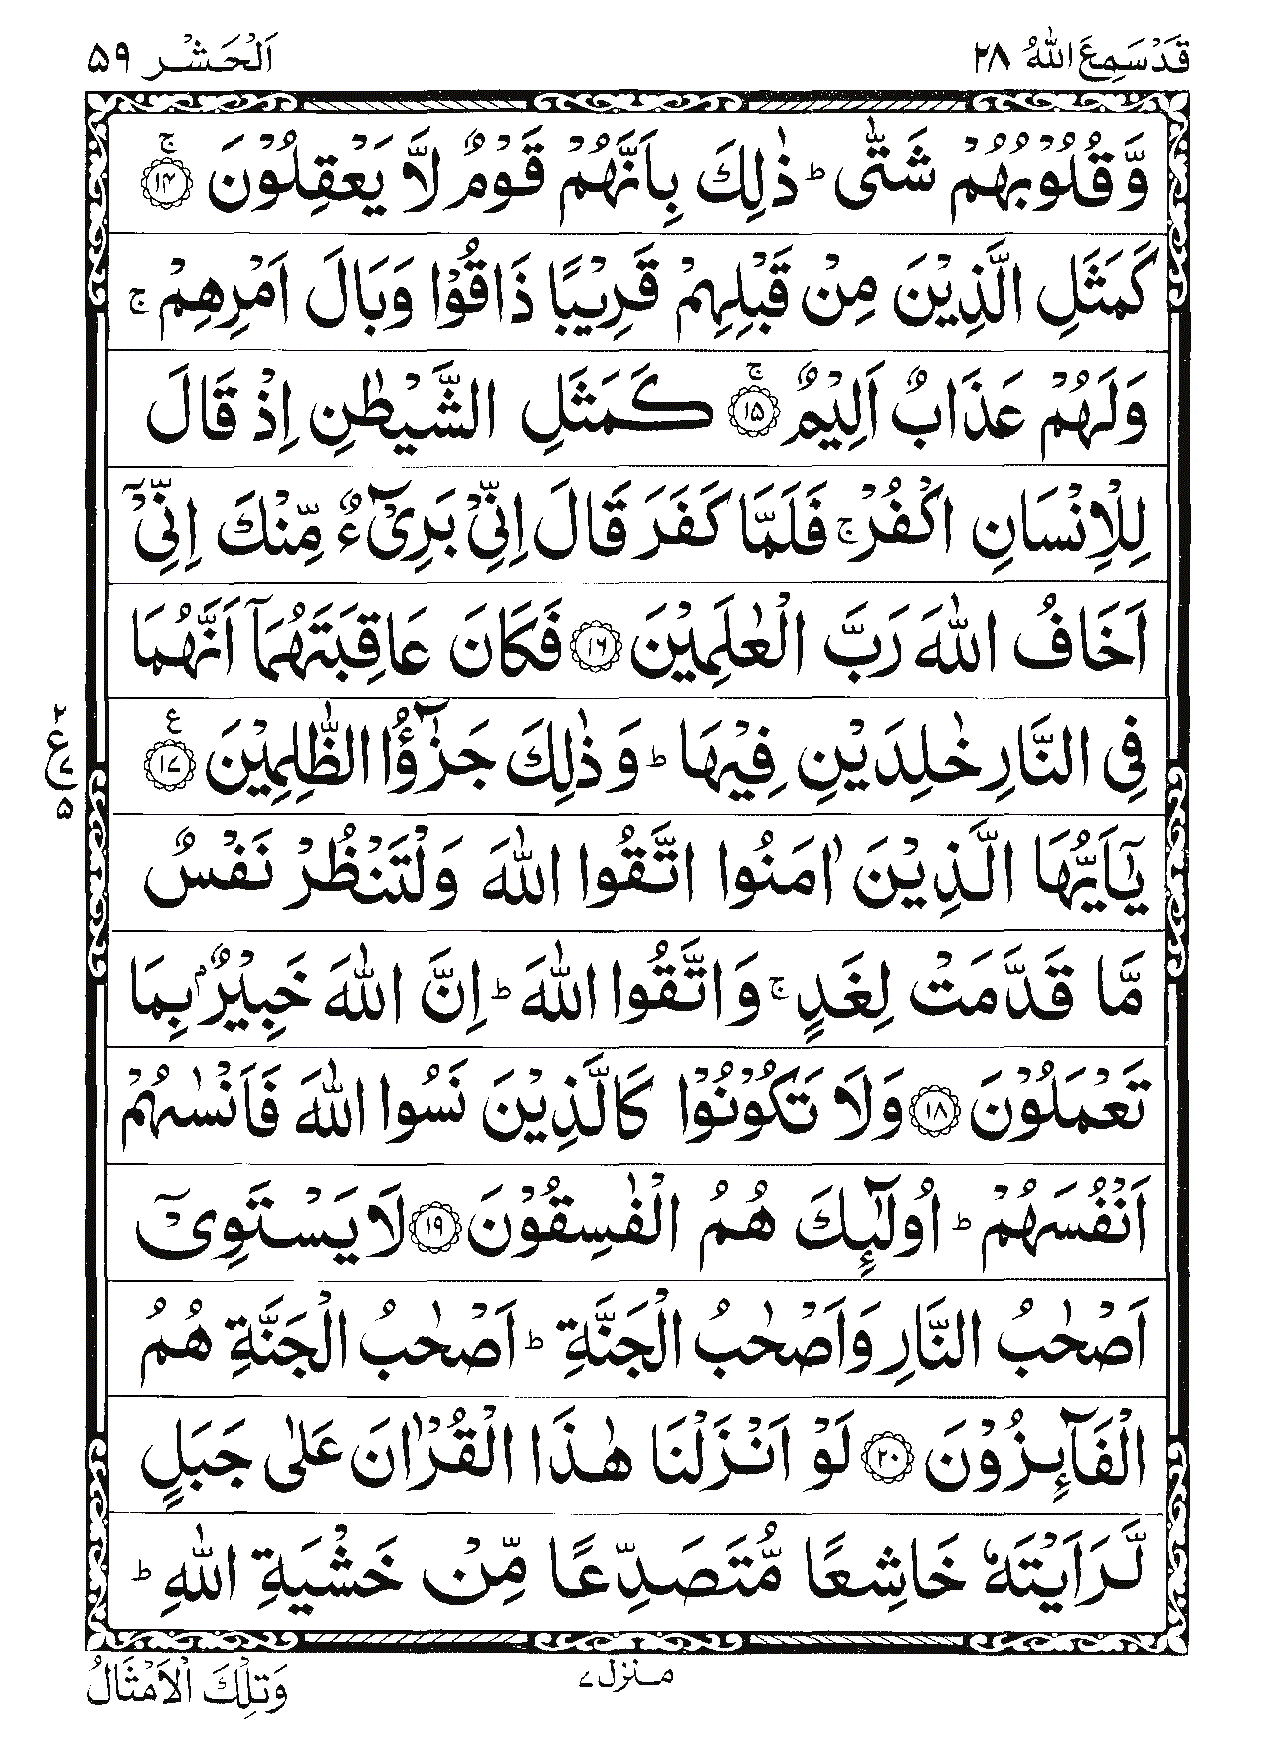 قَدْسَمِعَ اللّٰهُ ٢٨
اَلْحَشْر ٥٩
وَّقُلُوْبُهُمْ شَتّٰى ؕ ذٰلِكَ بِاَنَّهُمْ قَوْمٌ لَّا يَعْقِلُوْنَ ۚ﴿۱۴﴾
كَمَثَلِ الَّذِيْنَ مِنْ قَبْلِهِمْ قَرِيْبًا ذَاقُوْا وَبَالَ اَمْرِهِمْ ۚ
وَلَهُمْ عَذَابٌ اَلِيْمٌ ۚ﴿۱۵﴾ كَمَثَلِ الشَّيْطٰنِ اِذْ قَالَ
لِلْاِنْسَانِ اكْفُرْ ۚ فَلَمَّا كَفَرَ قَالَ اِنِّىْ بَرِىْٓءٌ مِّنْكَ اِنِّىْۤ
اَخَافُ اللّٰهَ رَبَّ الْعٰلَمِيْنَ ﴿۱۶﴾ فَكَانَ عَاقِبَتَهُمَاۤ اَنَّهُمَا
فِى النَّارِ خٰلِدَيْنِ فِيْهَا ؕ وَذٰلِكَ جَزٰٓؤُا الظّٰلِمِيْنَ ﴿۱۷﴾ ع
٢ ع ٧ ٥
يٰۤاَيُّهَا الَّذِيْنَ اٰمَنُوا اتَّقُوا اللّٰهَ وَلْتَنْظُرْ نَفْسٌ
مَّا قَدَّمَتْ لِغَدٍ ۚ وَاتَّقُوا اللّٰهَ ؕ اِنَّ اللّٰهَ خَبِيْرٌۢ بِمَا
تَعْمَلُوْنَ ﴿۱۸﴾ وَلَا تَكُوْنُوْا كَالَّذِيْنَ نَسُوا اللّٰهَ فَاَنْسٰىهُمْ
اَنْفُسَهُمْ ؕ اُولٰٓئِكَ هُمُ الْفٰسِقُوْنَ ﴿۱۹﴾ لَا يَسْتَوِىْۤ
اَصْحٰبُ النَّارِ وَاَصْحٰبُ الْجَنَّةِ ؕ اَصْحٰبُ الْجَنَّةِ هُمُ
الْفَآئِزُوْنَ ﴿۲۰﴾ لَوْ اَنْزَلْنَا هٰذَا الْقُرْاٰنَ عَلٰى جَبَلٍ
لَّرَاَيْتَهٗ خَاشِعًا مُّتَصَدِّعًا مِّنْ خَشْيَةِ اللّٰهِ ؕ
منزل ٧
وَتِلْكَ الْاَمْثَالُ